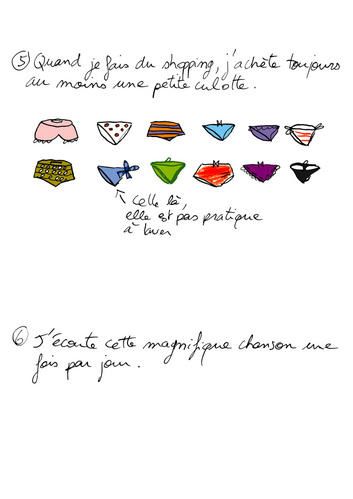 5 Quand je fais du shopping, j'achète toujours
au moins une petite culotte.
Celle là,
elle est pas pratique
à laver
6 J'écoute cette magnifique chanson une
fois par jour.